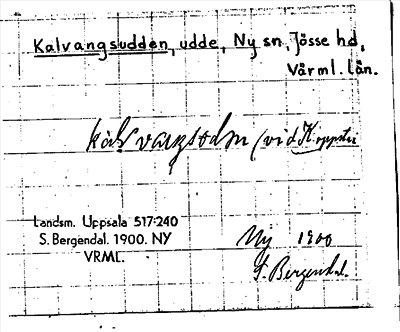 Kalvangsudden, udde, Ny sn, Jösse hd,
Värml. län.
(vid Koppsta
Landsm. Uppsala 517:240
S. Bergendal. 1900. NY
VRML.
Ny 1900
S. Bergendal.